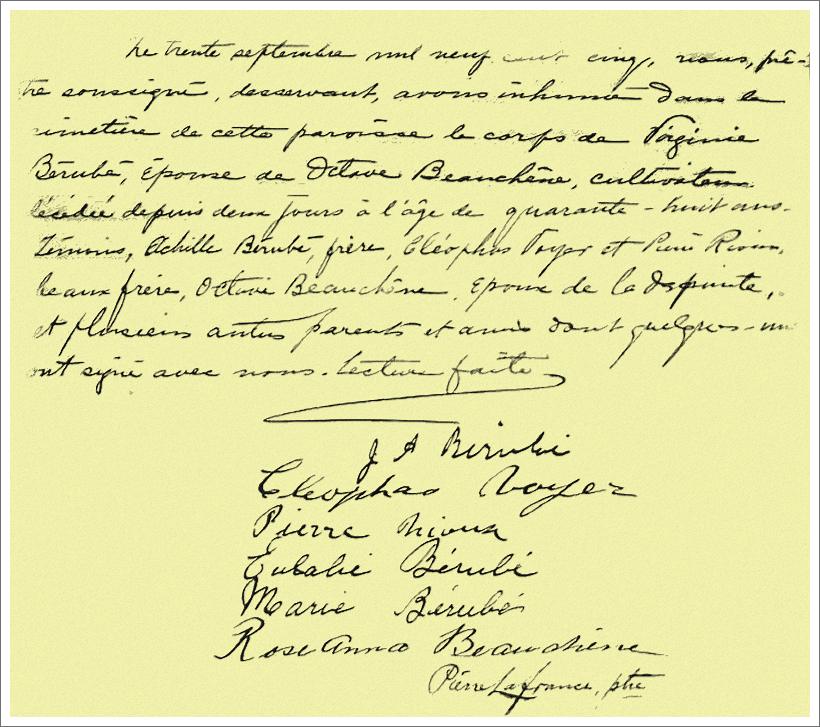 Le trente septembre mil neuf cent cinq, nous, prê-
tre soussigné, desservant, avons inhumé dans le
cimetière de cette paroisse le corps de Virginie
Bérubé, Epouse de Octave Beauchêne, cultivateur
décédée depuis deux jours à l'âge de quarante-huit ans.
Témoins, Achille Bérubé, frère, Cléophas Voyer et Pierre Rioux,
beaux frère, Octave Beauchêne, Epoux de la défunte,
et plusieurs autres parents et amis dont quelques-un
ont signé avec nous. Lecture faite
J A Bérubé
Cleophas Voyer
Pierre Rioux
Eulalie Bérubé
Marie Bérubé
Rose Anna Beauchêne
Pierre Lafrance, ptre